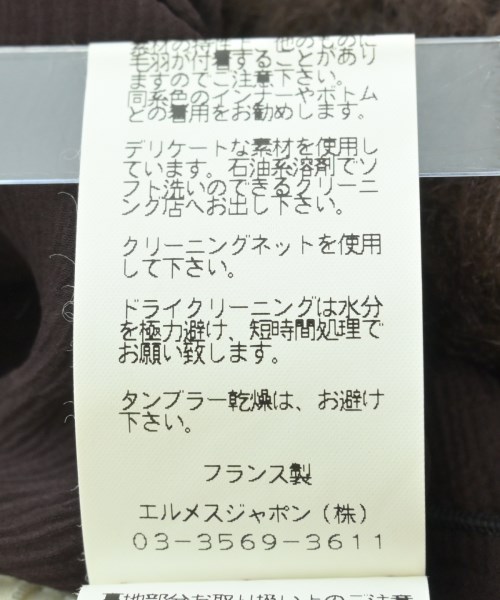 素材の特性上、他のものに
毛羽が付着することがあり
ますのでご注意下さい。
同系色のインナーやボトム
との着用をお勧めします。
デリケートな素材を使用し
ています。石油系溶剤でソ
フト洗いのできるクリーニ
ング店へお出し下さい。
クリーニングネットを使用
して下さい。
ドライクリーニングは水分
を極力避け、短時間処理で
お願い致します。
タンブラー乾燥は、お避け
下さい。
フランス製
エルメスジャポン(株)
03-3569-3611
裏地部分お取り扱い上のご注意